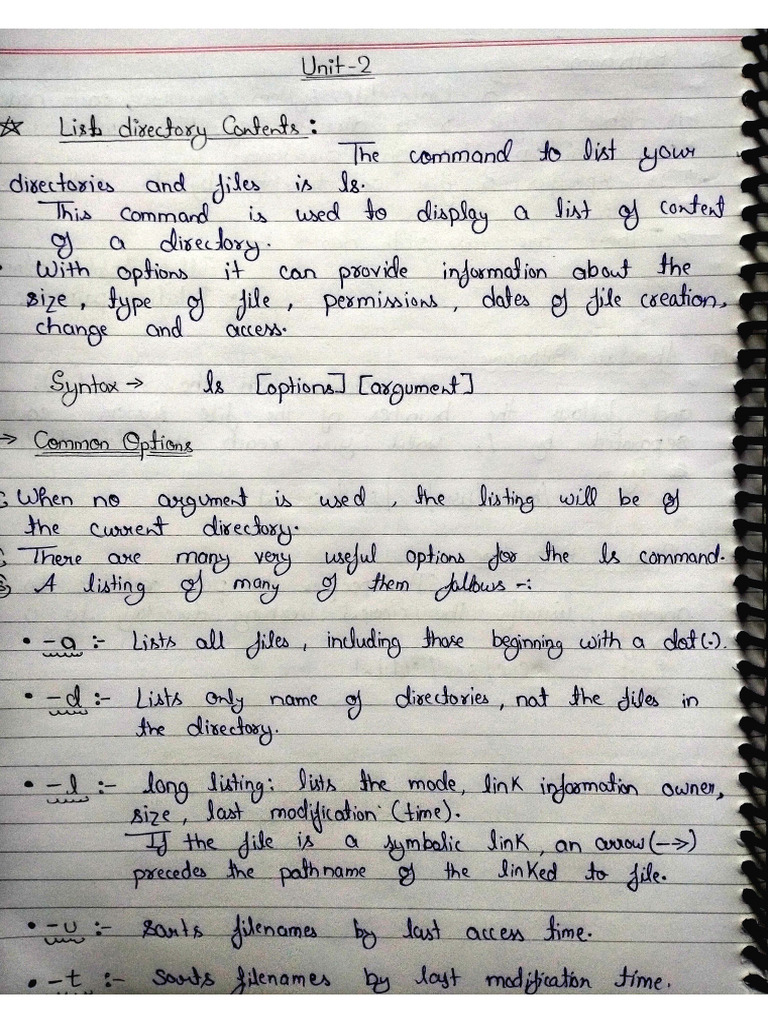 Unit-2
☆ List directory Contents :
The command to list your
directories and files is ls.
This command is used to display a list of content
of a directory.
With options it can provide information about the
size, type of file, permissions, dates of file creation,
change and access.
Syntax → ls [options] [argument]
→ Common Options
When no argument is used, the listing will be of
the current directory.
There are many very useful options for the ls command.
③ A listing of many of them follows -:
• -a :- Lists all files, including those beginning with a dot(.).
• -d :- Lists only name of directories, not the files in
the directory.
• -l :- long listing: lists the mode, link information owner,
size, last modification (time).
If the file is a symbolic link, an arrow(-->)
precedes the pathname of the linked to file.
• -u :- sorts filenames by last access time.
• -t :- sorts filenames by last modification time.